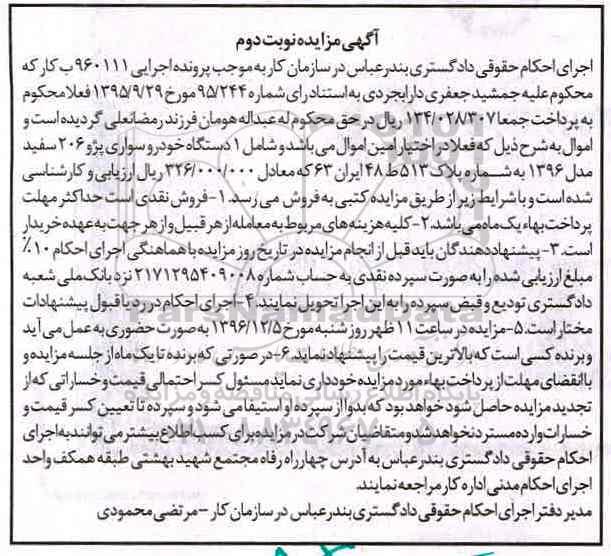 آگهی مزایده نوبت دوم
اجرای احکام حقوقی دادگستری بندرعباس در سازمان کار به موجب پرونده اجرایی ۹۶۰۱۱۱ ب کار که
محکوم علیه جمشید جعفری دارابجردی به استناد رای شماره ۹۵/۲۴۴ مورخ ۱۳۹۵/۹/۲۹ فعلا محکوم
به پرداخت جمعا ۱۳۴/۰۲۸/۳۰۷ ریال در حق محکوم له عبداله هومان فرزند رمضانعلی گردیده است و
اموال به شرح ذیل که فعلا در اختیار امین اموال می باشد و شامل ۱ دستگاه خودرو سواری پژو ۲۰۶ سفید
مدل ۱۳۹۶ به شماره پلاک ۵۱۳ ط ۴۸ ایران ۶۳ که معادل ۳۲۶/۰۰۰/۰۰۰ ریال ارزیابی و کارشناسی
شده است و با شرایط زیر از طریق مزایده کتبی به فروش می رسد. ۱- فروش نقدی است حداکثر مهلت
پرداخت بهاء یک ماه می باشد. ۲- کلیه هزینه های مربوط به معامله از هر قبیل و از هر جهت به عهده خریدار
است. ۳- پیشنهاد دهندگان باید قبل از انجام مزایده در تاریخ روز مزایده با هماهنگی اجرای احکام ۱۰٪
مبلغ ارزیابی شده را به صورت سپرده نقدی به حساب شماره ۲۱۷۱۲۹۵۴۰۹۰۰۸ نزد بانک ملی شعبه
دادگستری تودیع و قبض سپرده را به این اجرا تحویل نمایند. ۴- اجرای احکام در رد یا قبول پیشنهادات
مختار است. ۵- مزایده در ساعت ۱۱ ظهر روز شنبه مورخ ۱۳۹۶/۱۲/۵ به صورت حضوری به عمل می آید
و برنده کسی است که بالاترین قیمت را پیشنهاد نماید. ۶- در صورتی که برنده تا یک ماه از جلسه مزایده و
با انقضای مهلت از پرداخت بهاء مورد مزایده خودداری نماید مسئول کسر احتمالی قیمت و خساراتی که از
تجدید مزایده حاصل شود خواهد بود که بدوا از سپرده او استیفا می شود و سپرده تا تعیین کسر قیمت و
خسارات وارده مسترد نخواهد شد و متقاضیان شرکت در مزایده برای کسب اطلاع بیشتر می توانند به اجرای
احکام حقوقی دادگستری بندرعباس به آدرس چهارراه رفاه مجتمع شهید بهشتی طبقه همکف واحد
اجرای احکام مدنی اداره کار مراجعه نمایند.
مدیر دفتر اجرای احکام حقوقی دادگستری بندرعباس در سازمان کار - مرتضی محمودی